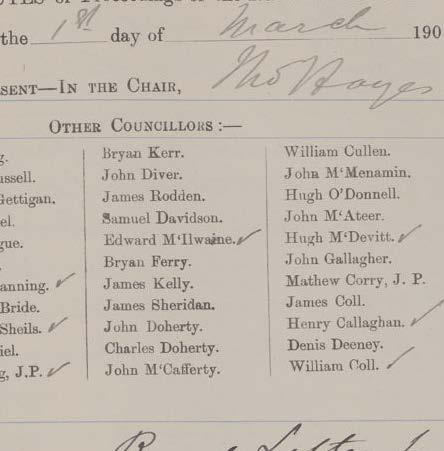 the 1st day of March 190
SENT—IN THE CHAIR, Tho Hayes
OTHER COUNCILLORS :—
g. Bryan Kerr. William Cullen.
ussell. John Diver. John M'Menamin.
Gettigan. James Rodden. Hugh O'Donnell.
el. Samuel Davidson. John M'Ateer.
gue. Edward M'Ilwaine. ✓ Hugh M'Devitt. ✓
. Bryan Ferry. John Gallagher.
anning. ✓ James Kelly. Mathew Corry, J. P.
Bride. James Sheridan. James Coll.
Sheils. ✓ John Doherty. Henry Callaghan. ✓
iel. Charles Doherty. Denis Deeney.
g, J.P. ✓ John M'Cafferty. William Coll. ✓